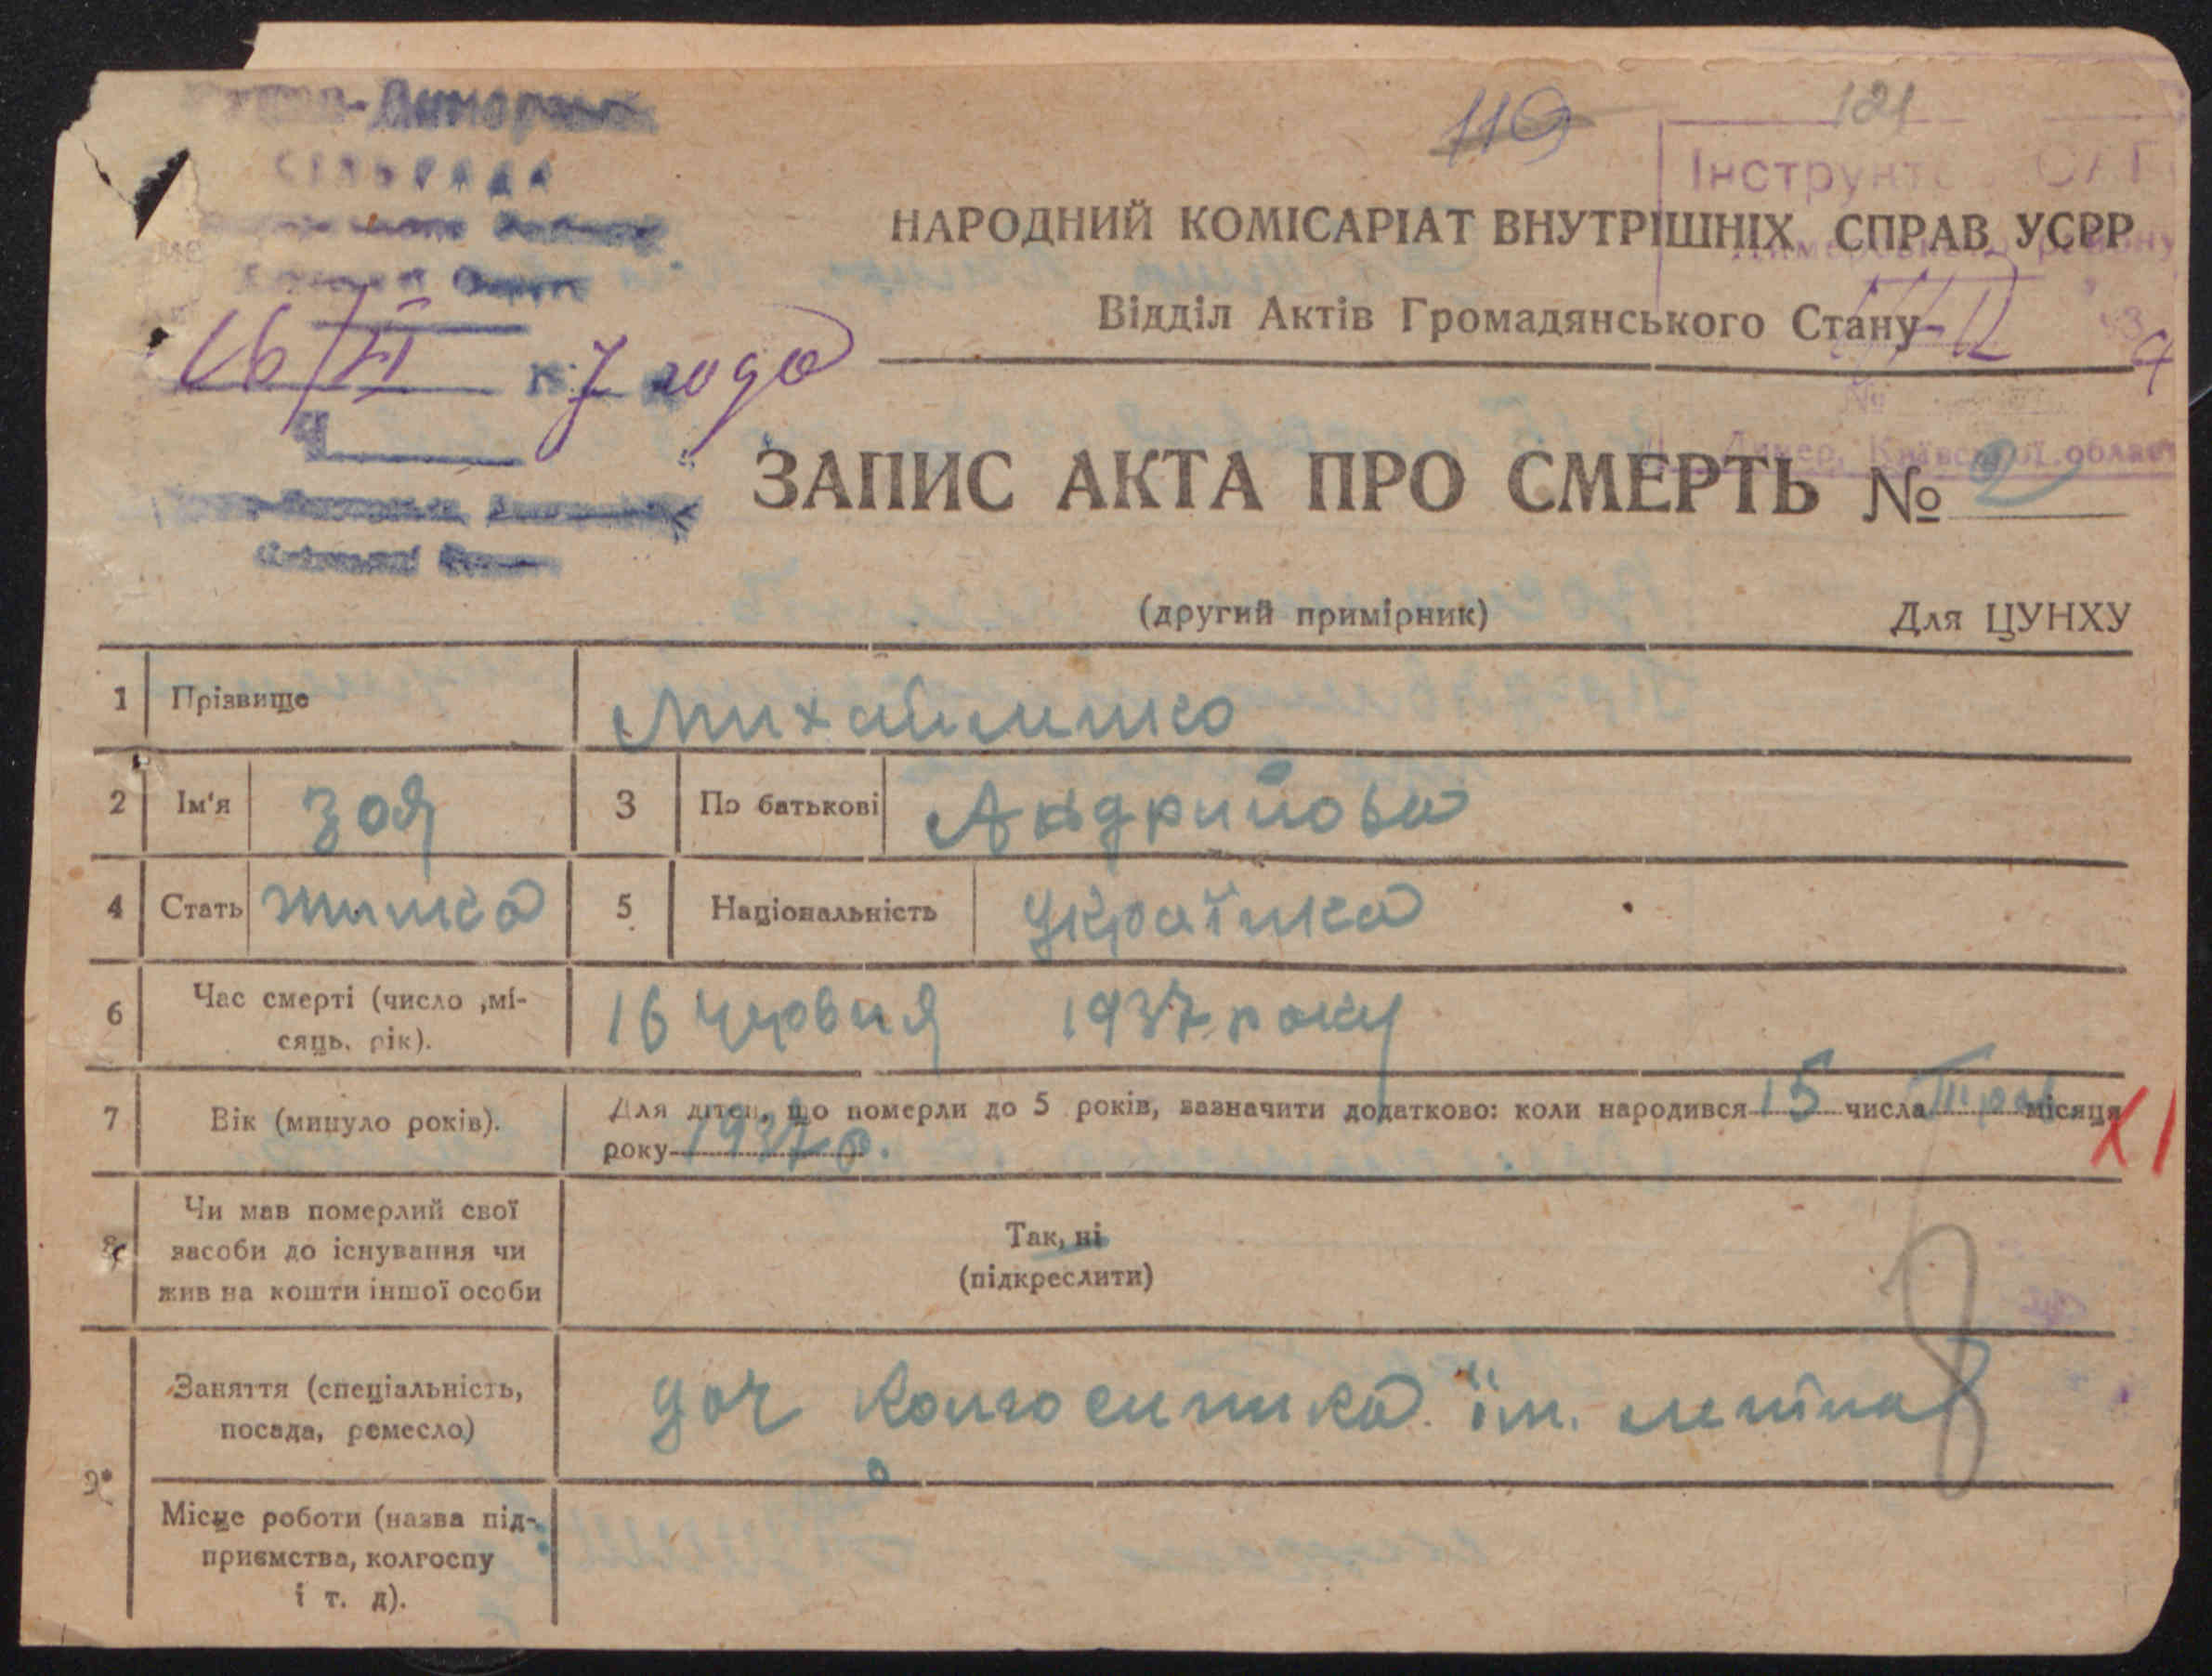 119
121
СІЛЬРАДА
НАРОДНИЙ КОМІСАРІАТ ВНУТРІШНІХ СПРАВ УСРР
Відділ Актів Громадянського Стану
7 года
Димер, Київської област
ЗАПИС АКТА ПРО СМЕРТЬ № 2
(другий примірник) Для ЦУНХУ
1 Прізвище Михайленко
2 Ім'я Зоя 3 По батькові Андрийова
4 Стать жинка 5 Національність Українка
6 Час смерті (число ,мі-
сяць, рік). 16 червня 1937 року
7 Вік (минуло років). Для дітей, що померли до 5 років, зазначити додатково: коли народився 15 числа трав місяця
року 1937 р.
XI
8 Чи мав померлий свої
засоби до існування чи
жив на кошти іншої особи
Так, ні
(підкреслити)
9* Заняття (спеціальність,
посада, ремесло)
доч колгоспника їм. леніна
Місце роботи (назва під-
приємства, колгоспу
і т. д).